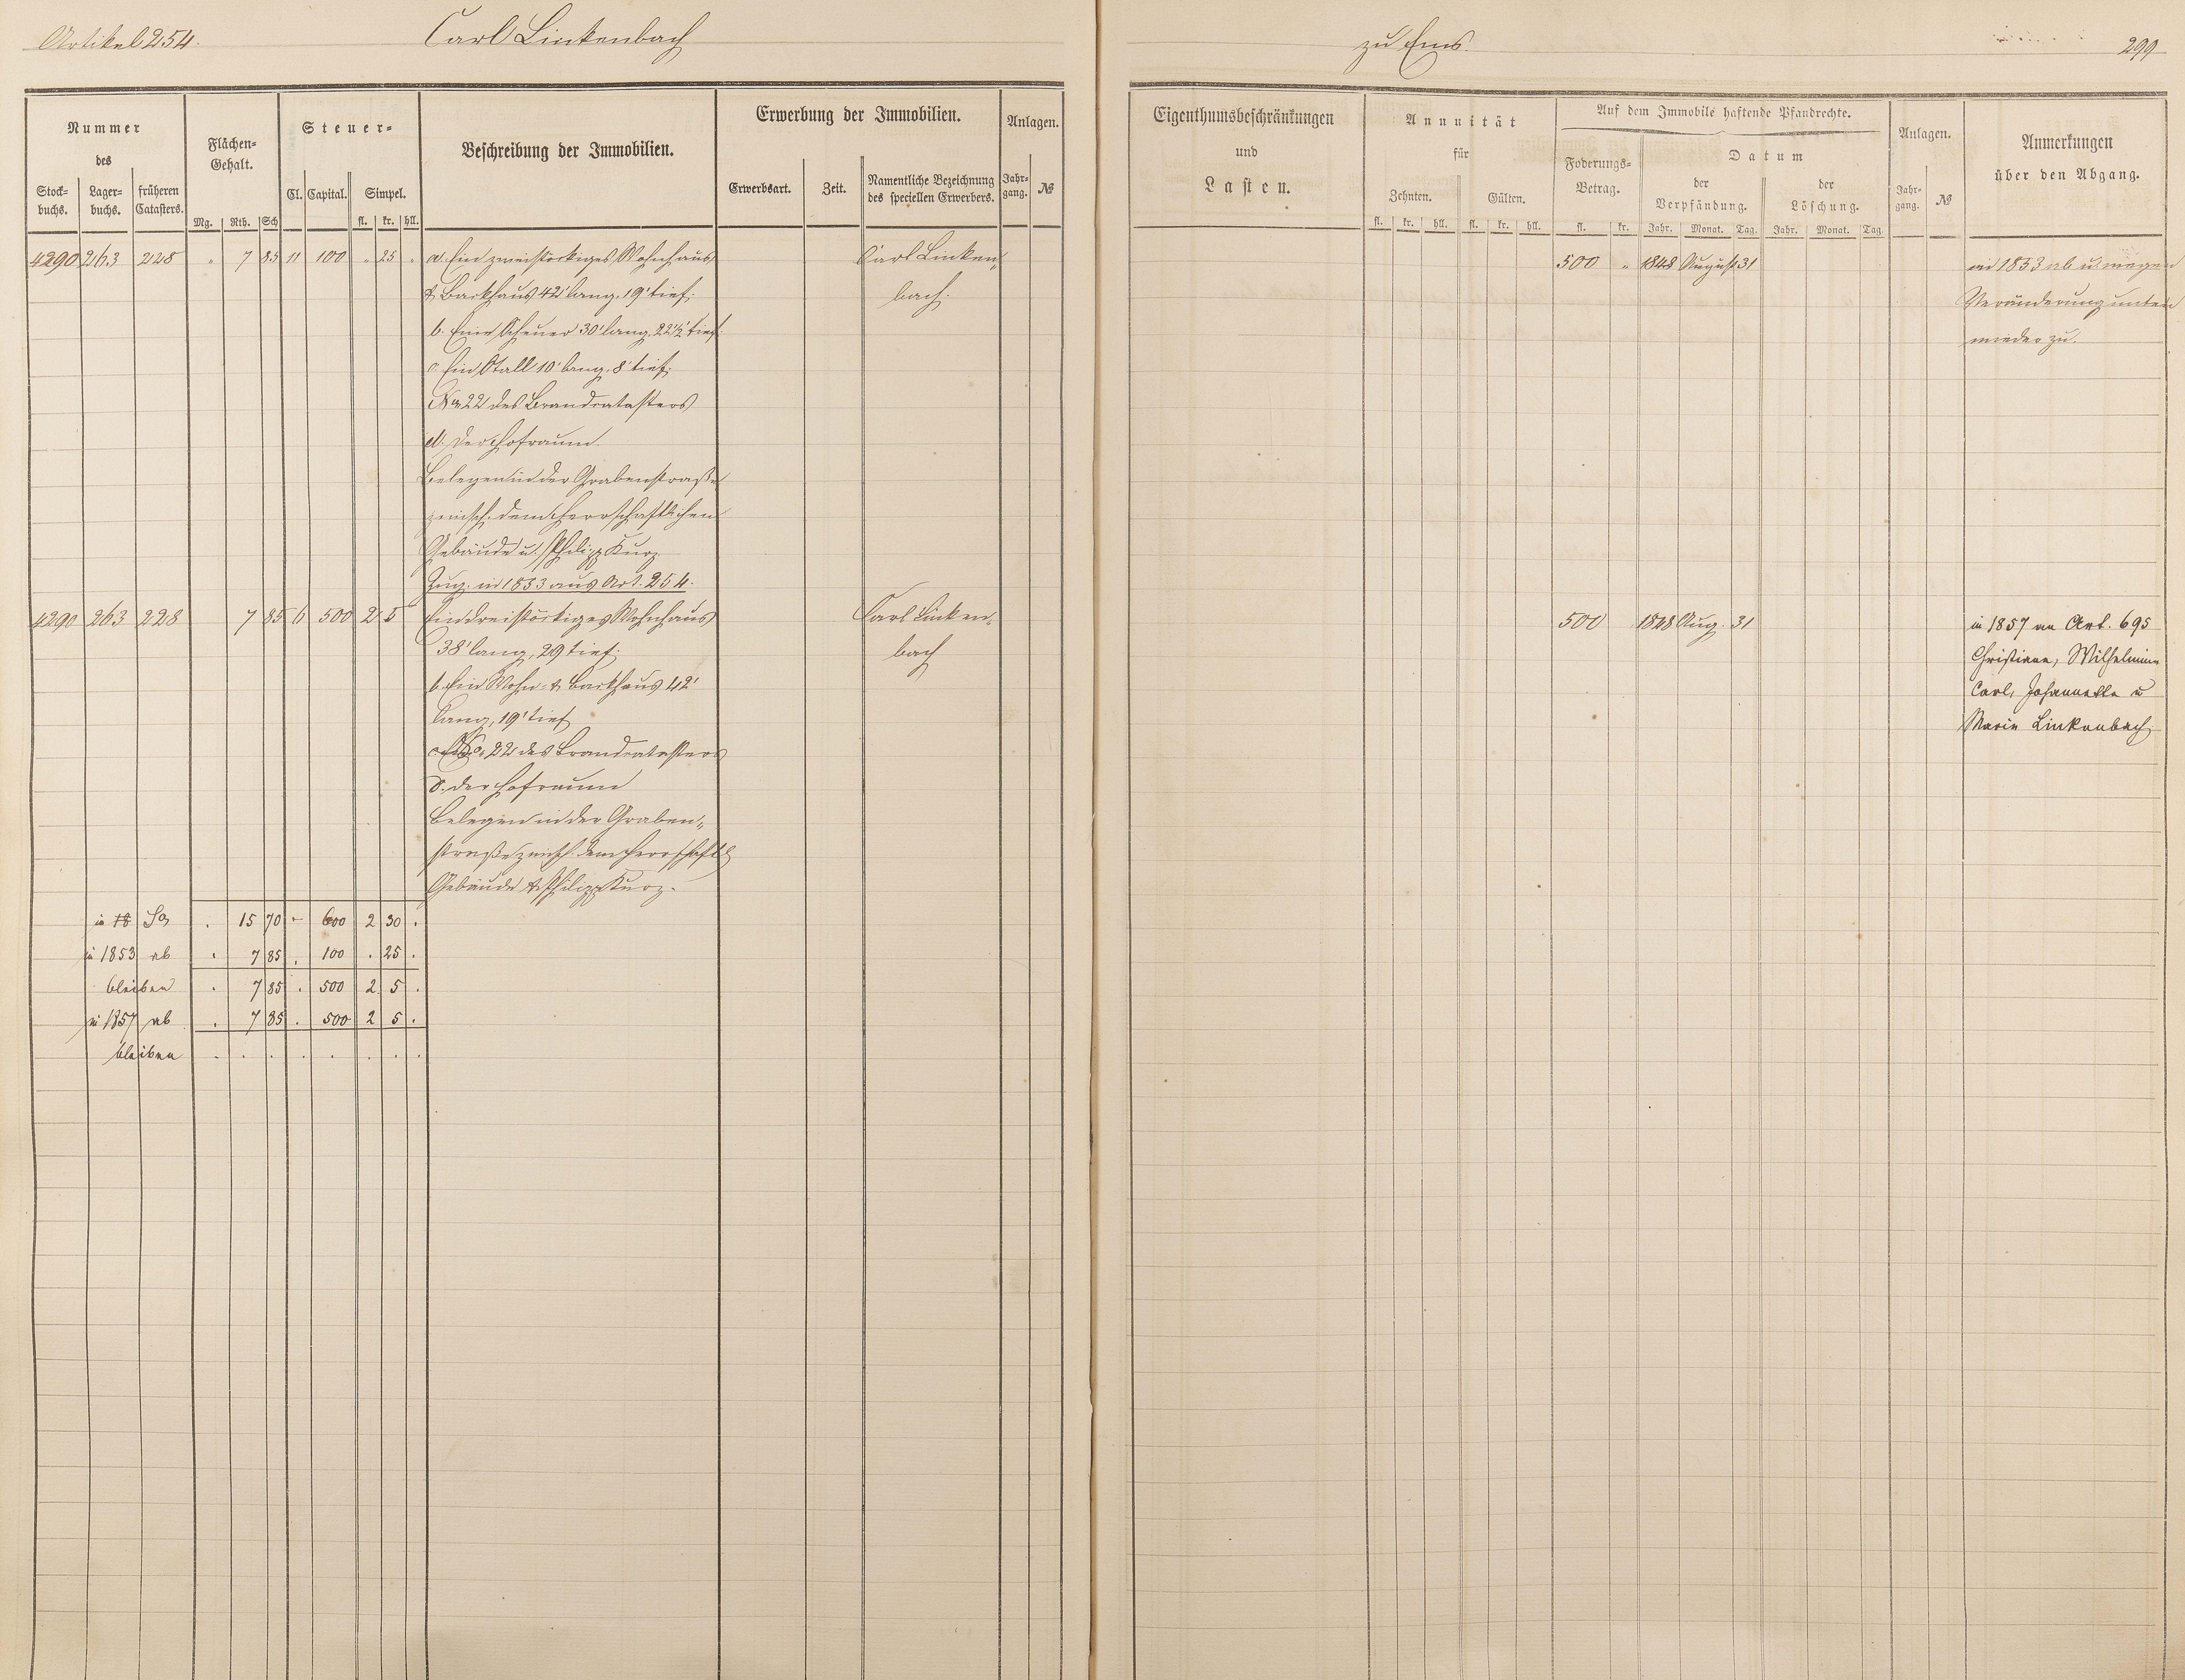 Artikel 254.
Carl Linkenbach
zu Ems.
299
Nummer
des
Stock-
buchs.
Lager-
buchs.
früheren
Catasters.
Flächen-
Gehalt.
Mg. Rth. Sch
Steuer-
Cl. Capital. Simpel.
fl. kr. hll.
Beschreibung der Immobilien.
Erwerbung der Immobilien.
Erwerbsart. Zeit. Namentliche Bezeichnung
des speciellen Erwerbers.
Anlagen.
Jahr-
gang. №
Eigenthumsbeschränkungen
und
Lasten.
Annuität
für
Zehnten. Gülten.
fl. kr. hll. fl. kr. hll.
Auf dem Immobile haftende Pfandrechte.
Foderungs-
Betrag.
fl. kr.
Datum
der
Verpfändung.
Jahr. Monat. Tag.
der
Löschung.
Jahr. Monat. Tag.
Anlagen.
Jahr-
gang. №
Anmerkungen
über den Abgang.
4290 263 228 " 7 85 11 100 " 25 " a. Ein zweistöckiges Wohnhaus Carl Linken- 500 " 1848 August 31 in 1853 ab u. wegen
& Backhaus 42' lang, 19' tief. bach. Veränderung unten
b. Eine Scheuer 30' lang, 22½' tief. wieder zu.
c. Ein Stall 10' lang, 8' tief.
No 22 des Brandcatasters
d. Der Hofraum.
Belegen in der Grabenstraße
zwisch. dem Herrschaftlichen
Gebäude u. Philipp Kurz
Zug. in 1853 aus Art. 254.
4290 263 228 7 85 6 500 2 5 Ein dreistöckiges Wohnhaus Carl Linken- 500 1848 Aug. 31 in 1857 an Art. 695
38' lang, 29' tief. bach Christiane, Wilhelmine
b. Ein Wohn- & Backhaus 42' Carl, Johannette u
lang, 19' tief Marie Linkenbach
No. 22 des Brandcatasters
d. der Hofraum
Belegen in der Graben-
straße zwisch. dem Herrschaftl.
Gebäude & Philipp Kurz.
in 18 Sa . 15 70 - 600 2 30 .
in 1853 ab . 7 85 . 100 . 25 .
bleiben . 7 85 . 500 2 5 .
in 1857 ab . 7 85 . 500 2 5 .
bleiben . . . . . . . .